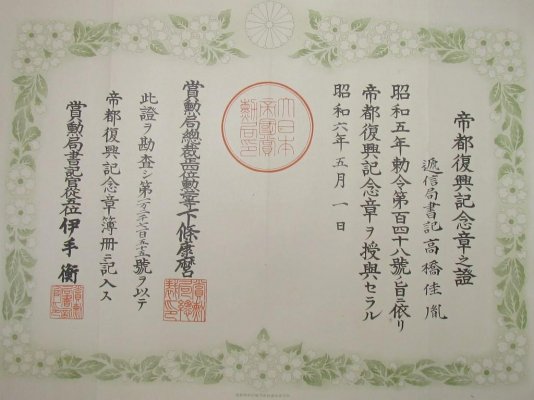 帝都復興記念章之證
遞信局書記 高橋佳胤
昭和五年勅令第百四十八號ノ旨ニ依リ
帝都復興記念章ヲ授與セラル
昭和六年五月一日
大日本
帝國賞
勲局印
賞勲局總裁正位勲等下條康麿
此證ヲ勘査シ第號ヲ以テ
帝都復興記念章簿冊ニ記入ス
賞勲局書記官從五位 伊手衡